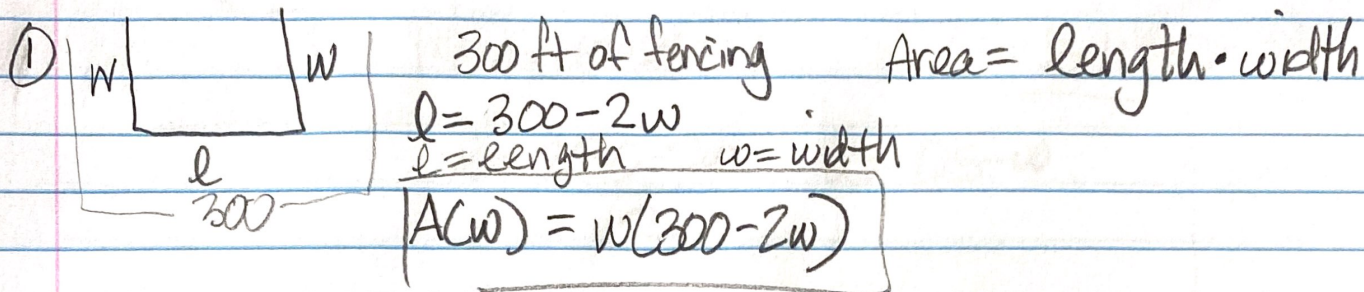 ① w w 300 ft of fencing Area = length · width
l = 300 - 2w
l l = length w = width
300 A(w) = w(300-2w)